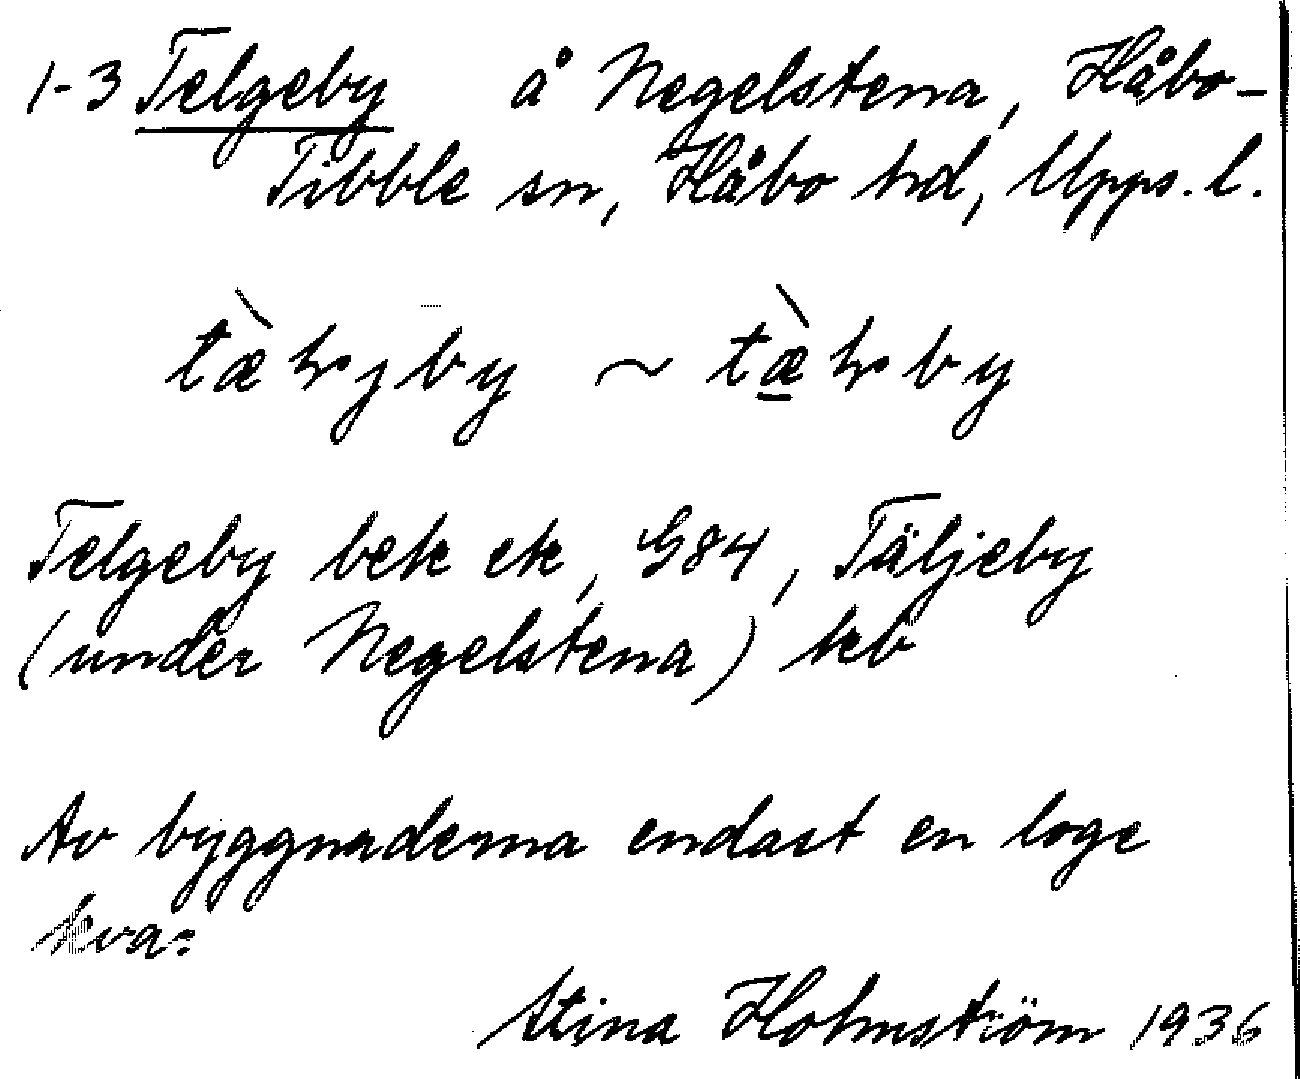 1-3 Telgeby å Negelstena, Håbo-
Tibble sn, Håbo hd, Upps. l.
Telgeby bek ek, G84, Täljeby
(under Negelstena) kb
Av byggnaderna endast en loge
kvar
Stina Holmström 1936